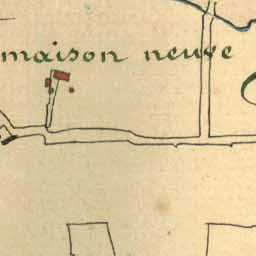 maison neuve